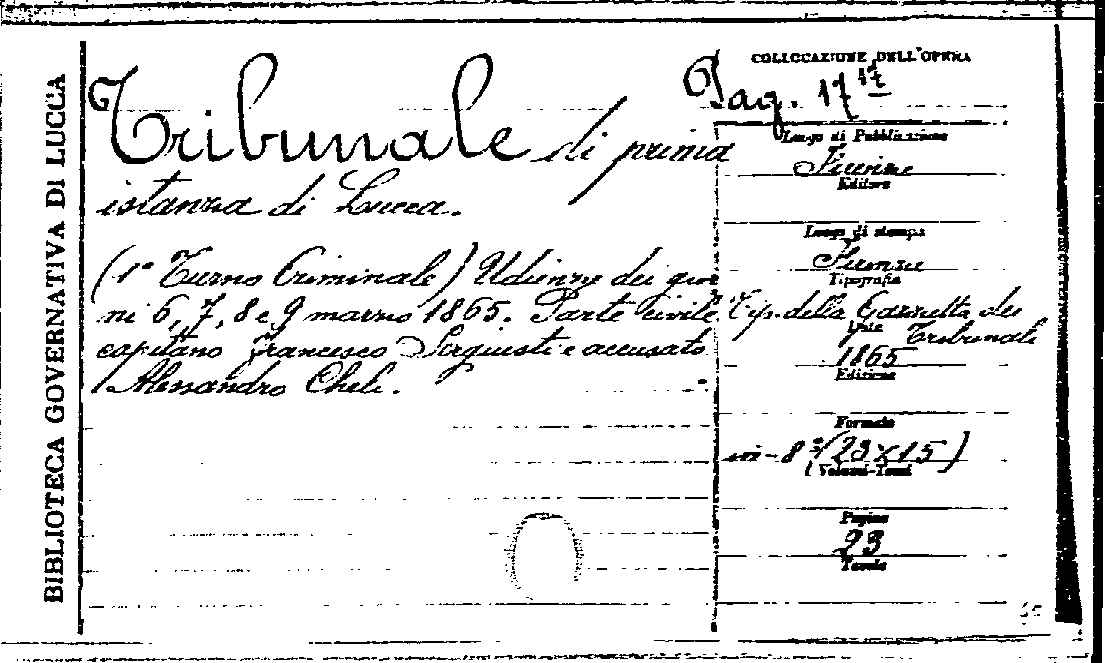 BIBLIOTECA GOVERNATIVA DI LUCCA
Tribunale di prima
istanza di Lucca.
(1° Turno Criminale) Udienze dei gior
ni 6, 7, 8 e 9 marzo 1865. Parte civile
capitano Francesco e accusato
Alessandro Cheli.
COLLOCAZIONE DELL'OPERA
Pag. 17 17
Luogo di Pubblicazione
Firenze
Editore
Luogo di stampa
Firenze
Tipografia
Tip. della Gazzetta dei
Tribunali
Data
1865
Edizione
Formato
in-8° (23×15)
Volumi-Tomi
Pagine
23
Tavole